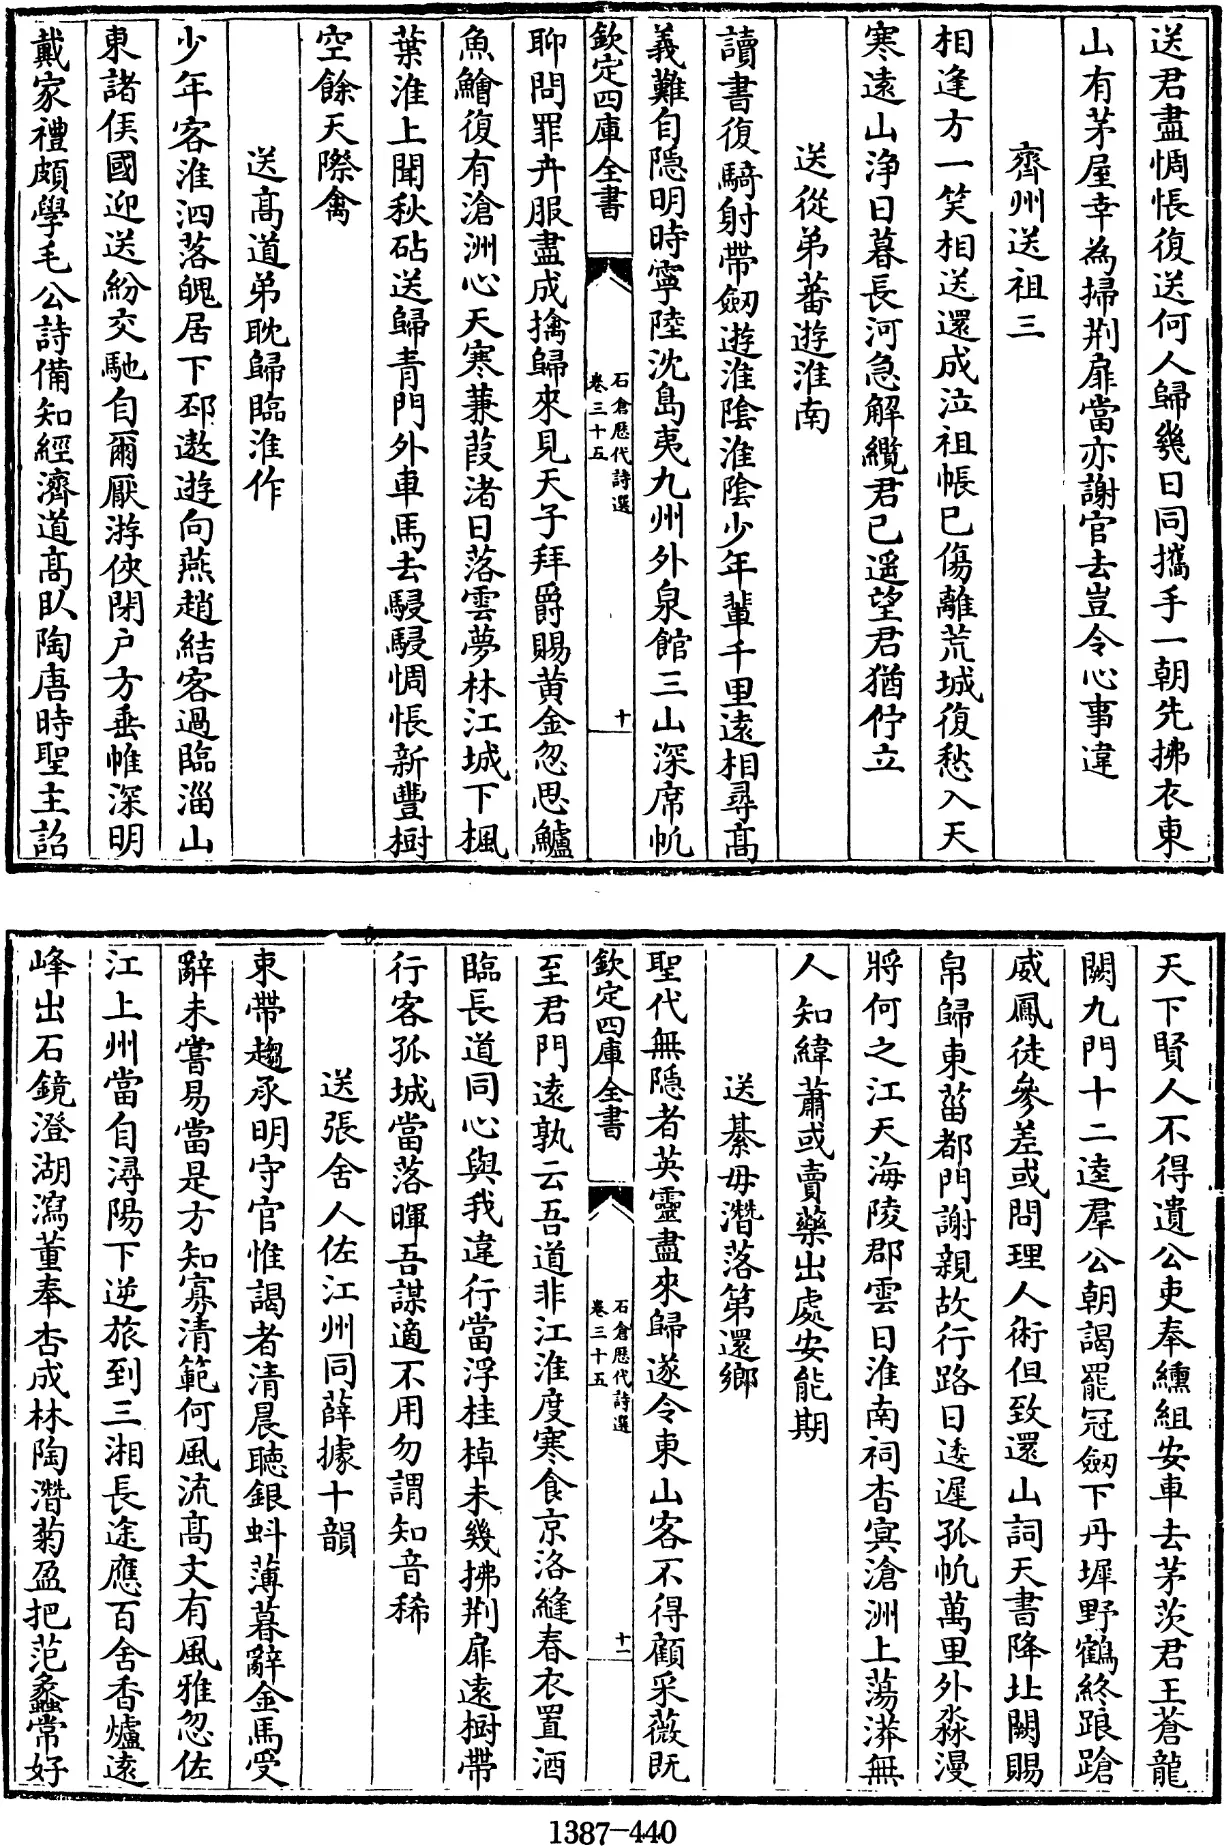 送君盡惆悵復送何人歸幾日同攜手一朝先拂衣東
山有茅屋幸為掃荆扉當亦謝官去豈令心事違
齊州送祖三
相逢方一笑相送還成泣祖帳已傷離荒城復愁入天
寒遠山浄日暮長河急解纜君已遥望君猶佇立
送從弟蕃遊淮南
讀書復騎射帶劒遊淮隂淮隂少年輩千里逺相尋髙
義難自隠明時寧陸沈島夷九州外泉館三山深席帆
欽定四庫全書
石倉歴代詩選
卷三十五
十
聊問罪卉服盡成擒歸來見天子拜爵賜黄金忽思鱸
魚鱠復有滄洲心天寒蒹葭渚日落雲夢林江城下楓
葉淮上聞秋砧送歸青門外車馬去駸駸惆悵新豐樹
空餘天際禽
送髙道弟耽歸臨淮作
少年客淮泗落魄居下邳遨遊向燕趙結客過臨淄山
東諸侯國迎送紛交馳自爾厭游俠閉户方垂帷深明
戴家禮頗學毛公詩備知經濟道髙臥陶唐時聖主詔
天下賢人不得遺公吏奉纁組安車去茅茨君王蒼龍
闕九門十二逵羣公朝謁罷冠劒下丹墀野鶴終踉蹌
威鳳徒參差或問理人術但致還山詞天書降北闕賜
帛歸東菑都門謝親故行路日逶遲孤帆萬里外淼漫
將何之江天海陵郡雲日淮南祠杳冥滄洲上蕩漭無
人知緯蕭或賣藥出處安能期
送綦毋潛落第還鄉
聖代無隠者英靈盡來歸遂令東山客不得顧采薇既
欽定四庫全書
石倉歴代詩選
卷三十五
十一
至君門逺孰云吾道非江淮度寒食京洛縫春衣置酒
臨長道同心與我違行當浮桂棹未幾拂荆扉逺樹帶
行客孤城當落暉吾謀適不用勿謂知音稀
送張舍人佐江州同薛據十韻
束帶趨承明守官惟謁者清晨聽銀蚪薄暮辭金馬受
辭未嘗易當是方知寡清範何風流髙文有風雅忽佐
江上州當自潯陽下逆旅到三湘長途應百舍香爐逺
峰出石鏡澄湖瀉董奉杏成林陶潛菊盈把范蠡常好
1387-440